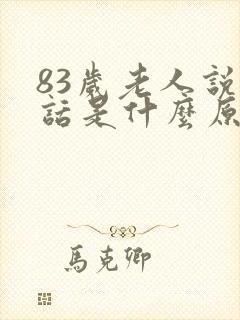 83歲老人說
話是什麼原
馬克卿